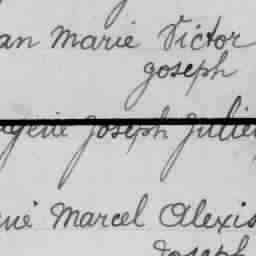 an Marie Victor
Joseph
ugène Joseph Julien
né Marcel Alexis
Joseph